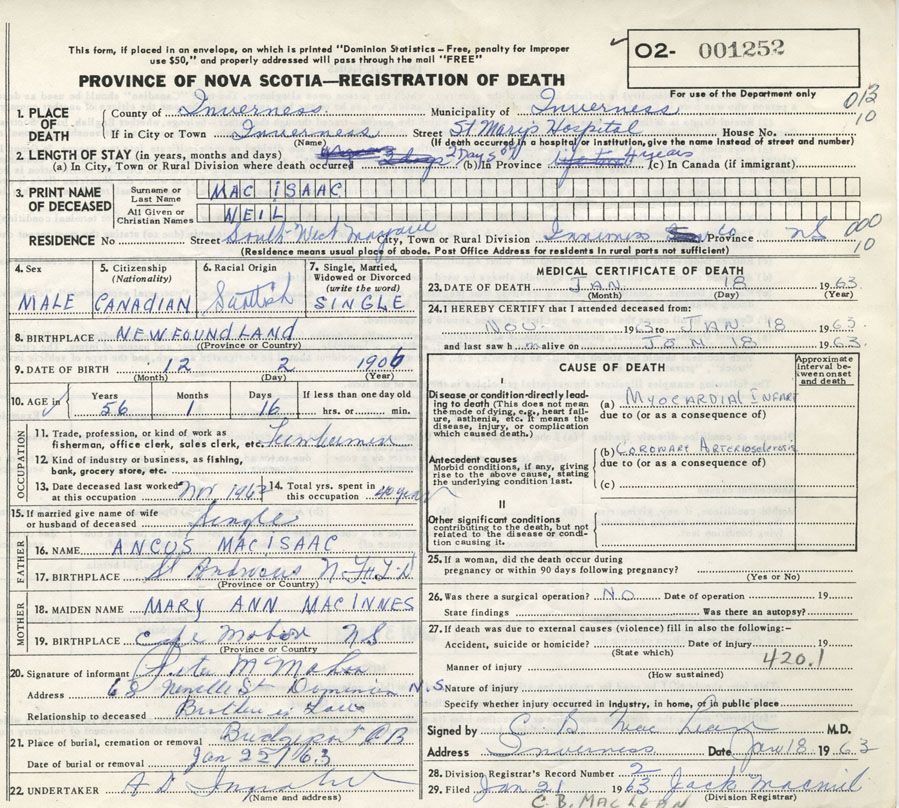 This form, if placed in an envelope, on which is printed "Dominion Statistics – Free, penalty for improper
use $50," and properly addressed will pass through the mail "FREE"
O2- 001252
PROVINCE OF NOVA SCOTIA—REGISTRATION OF DEATH
For use of the Department only
013
10
1. PLACE OF DEATH
County of Inverness Municipality of Inverness
If in City or Town Inverness Street St Marys Hospital House No.
(Name) (If death occurred in a hospital or institution, give the name instead of street and number)
2. LENGTH OF STAY (in years, months and days)
(a) In City, Town or Rural Division where death occurred 2 Days (b) In Province years (c) In Canada (if immigrant)
3. PRINT NAME OF DECEASED
Surname or Last Name MAC ISAAC
All Given or Christian Names NEIL
RESIDENCE No Street South West Margaree City, Town or Rural Division Inverness Co Province NS
000
10
(Residence means usual place of abode. Post Office Address for residents in rural parts not sufficient)
4. Sex MALE
5. Citizenship (Nationality) CANADIAN
6. Racial Origin Scottish
7. Single, Married, Widowed or Divorced (write the word) SINGLE
8. BIRTHPLACE NEWFOUNDLAND
(Province or Country)
9. DATE OF BIRTH 12 2 1906
(Month) (Day) (Year)
10. AGE in Years 56 Months 1 Days 16 If less than one day old
hrs. or min.
OCCUPATION
11. Trade, profession, or kind of work as
fisherman, office clerk, sales clerk, etc.
12. Kind of industry or business, as fishing,
bank, grocery store, etc.
13. Date deceased last worked at this occupation Nov 1962
14. Total yrs. spent in this occupation 40 years
15. If married give name of wife
or husband of deceased Single
FATHER
16. NAME ANGUS MACISAAC
17. BIRTHPLACE St Andrews NFLD
(Province or Country)
MOTHER
18. MAIDEN NAME MARY ANN MACINNES
19. BIRTHPLACE Cape Mabou NS
(Province or Country)
20. Signature of informant Peter M
Address 63 Neville St Dominion N.S.
Relationship to deceased Brother in Law
21. Place of burial, cremation or removal Bridgeport CB
Date of burial or removal Jan 22/63
22. UNDERTAKER A D
(Name and address)
MEDICAL CERTIFICATE OF DEATH
23. DATE OF DEATH JAN 18 1963
(Month) (Day) (Year)
24. I HEREBY CERTIFY that I attended deceased from:
Nov. 1963 to JAN 18 1963.
and last saw h m alive on JAN 18 1963.
CAUSE OF DEATH
Approximate interval between onset and death
I
Disease or condition directly leading to death (This does not mean the mode of dying, e.g., heart failure, asthenia, etc. It means the disease, injury, or complication which caused death.)
(a) MYOCARDIAL INFARCT
due to (or as a consequence of)
Antecedent causes
Morbid conditions, if any, giving rise to the above cause, stating the underlying condition last.
(b) CORONARY ARTERIOSCLEROSIS
due to (or as a consequence of)
(c)
II
Other significant conditions
contributing to the death, but not related to the disease or condition causing it.
25. If a woman, did the death occur during
pregnancy or within 90 days following pregnancy?
(Yes or No)
26. Was there a surgical operation? NO Date of operation 19
State findings Was there an autopsy?
27. If death was due to external causes (violence) fill in also the following:–
Accident, suicide or homicide? Date of injury 19
(State which)
420.1
Manner of injury
(How sustained)
Nature of injury
Specify whether injury occurred in industry, in home, or in public place
Signed by C B MacLean M.D.
Address Inverness Date Jan 18 1963
28. Division Registrar's Record Number 2
29. Filed Jan 21 1963 Jack MacNeil
(Division Registrar)
C.B. MACLEAN